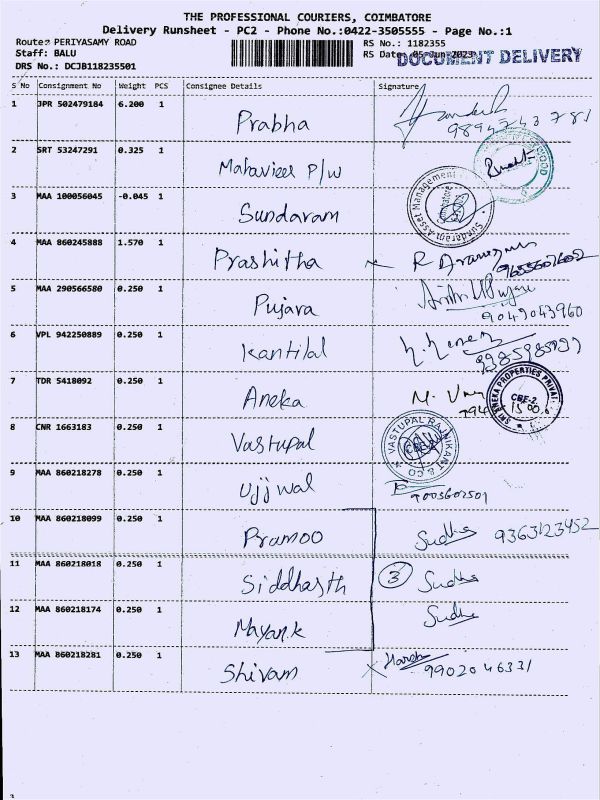 THE PROFESSIONAL COURIERS, COIMBATORE
Delivery Runsheet - PC2 - Phone No.:0422-3505555 - Page No.:1
Route: PERIYASAMY ROAD
RS No.: 1182355
Staff: BALU
RS Date: 05-Jun-2023
DOCUMENT DELIVERY
DRS No.: DCJB118235501
S No Consignment No Weight PCS Consignee Details Signature
1 JPR 502479184 6.200 1 Prabha
2 SRT 53247291 0.325 1 Mahaveer P/W
3 MAA 100056045 -0.045 1 Sundaram
Sundaram Asset Management
4 MAA 860245888 1.570 1 Prashitha R
5 MAA 290566580 0.250 1 Pujara
9049043960
6 VPL 942250889 0.250 1 Kantilal
7 TDR 5418092 0.250 1 Aneka M.
SRI ANEKA PROPERTIES PRIVAT
CBE-2
8 CNR 1663183 0.250 1 Vastupal
VASTUPAL RAJNIKANT & CO
9 MAA 860218278 0.250 1 Ujjwal
9003602501
10 MAA 860218099 0.250 1 Pramoo Sudha 9363123452
11 MAA 860218018 0.250 1 Siddharth 3 Sudha
12 MAA 860218174 0.250 1 Mayank Sudha
13 MAA 860218281 0.250 1 Shivam Harsh
9902046331